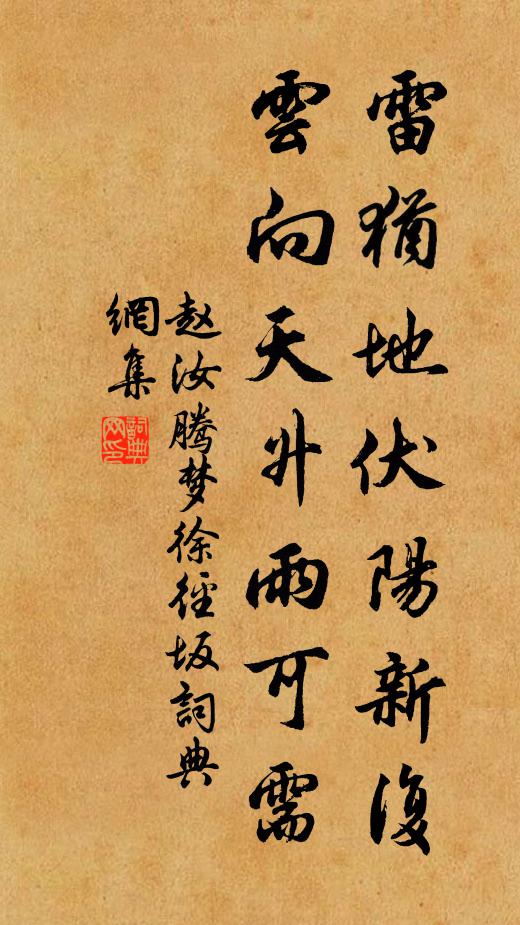 雷猶地伏陽新復
雲向天升雨可需
赵汝腾梦徐徑坂詞典
網集
詞典
网印